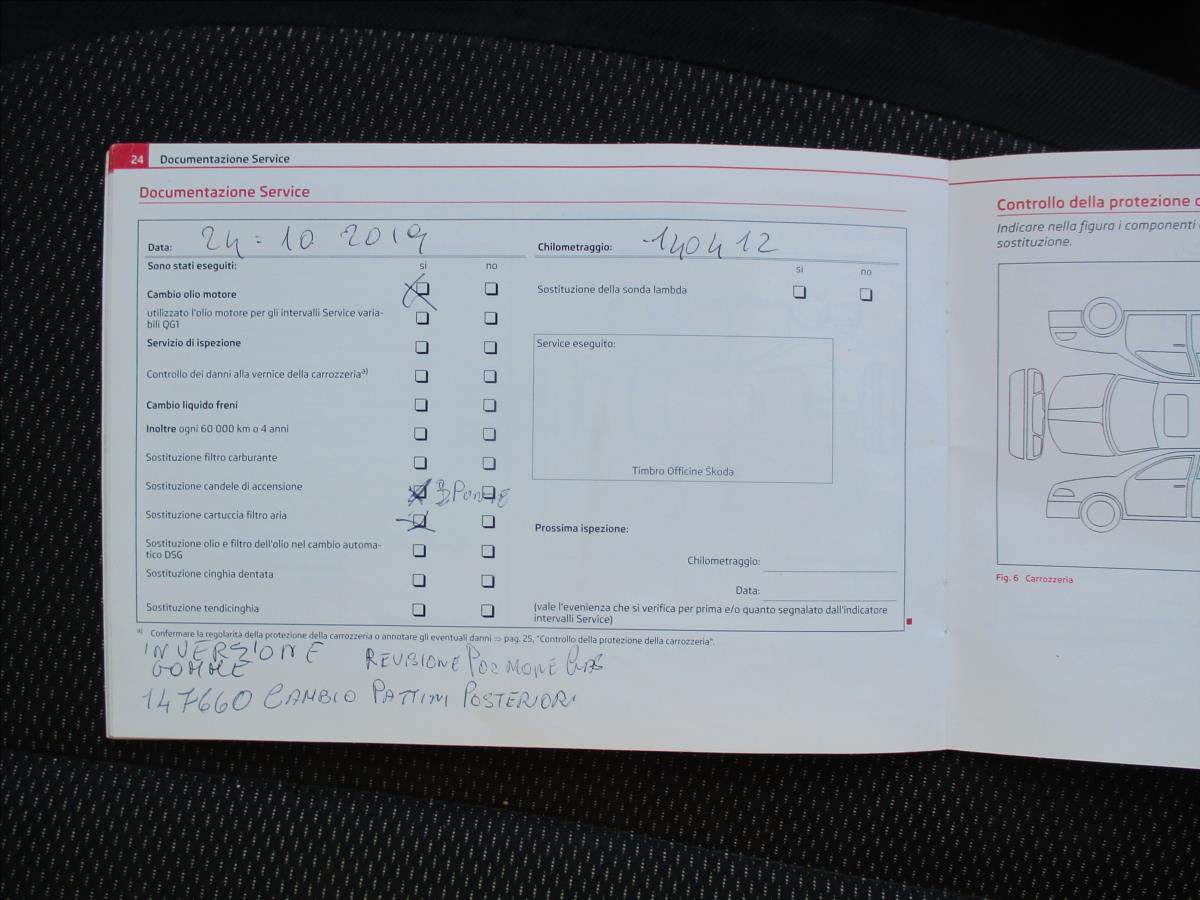 24 Documentazione Service
Documentazione Service
Data: 24 = 10 2019
Chilometraggio: 140412
Sono stati eseguiti: si no
Cambio olio motore
utilizzato l'olio motore per gli intervalli Service varia-
bili QG1
Servizio di ispezione
Controllo dei danni alla vernice della carrozzeria a)
Cambio liquido freni
Inoltre ogni 60 000 km o 4 anni
Sostituzione filtro carburante
Sostituzione candele di accensione
Sostituzione cartuccia filtro aria
Sostituzione olio e filtro dell'olio nel cambio automa-
tico DSG
Sostituzione cinghia dentata
Sostituzione tendicinghia
si no
Sostituzione della sonda lambda
Service eseguito:
Timbro Officine Škoda
Prossima ispezione:
Chilometraggio:
Data:
(vale l'evenienza che si verifica per prima e/o quanto segnalato dall'indicatore
intervalli Service)
a) Confermare la regolarità della protezione della carrozzeria o annotare gli eventuali danni ⇒ pag. 25, "Controllo della protezione della carrozzeria".
INVERZIONE
GOMME
REVISIONE POLMONE GAS
147660 CAMBIO PATTINI POSTERIORI
Controllo della protezione
Indicare nella figura i componenti
sostituzione.
Fig. 6 Carrozzeria